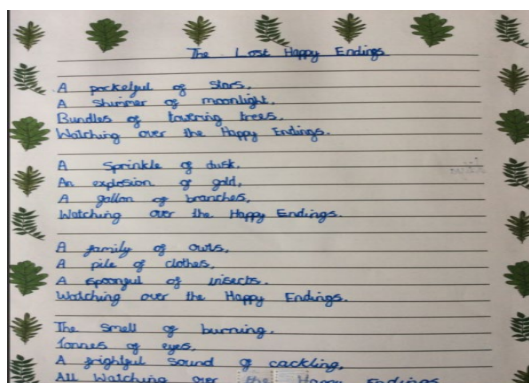 The Lost Happy Endings
A pocketful of stars,
A shimmer of moonlight.
Bundles of towering trees.
Watching over the Happy Endings.
A Sprinkle of dusk,
An explosion of gold,
A gallon of branches,
Watching over the Happy Endings.
A family of owls,
A pile of clothes,
A spoonful of insects.
Watching over the Happy Endings.
The Smell of burning.
Tonnes of eyes,
A frightful Sound of cackling,
All Watching over the Happy Endings